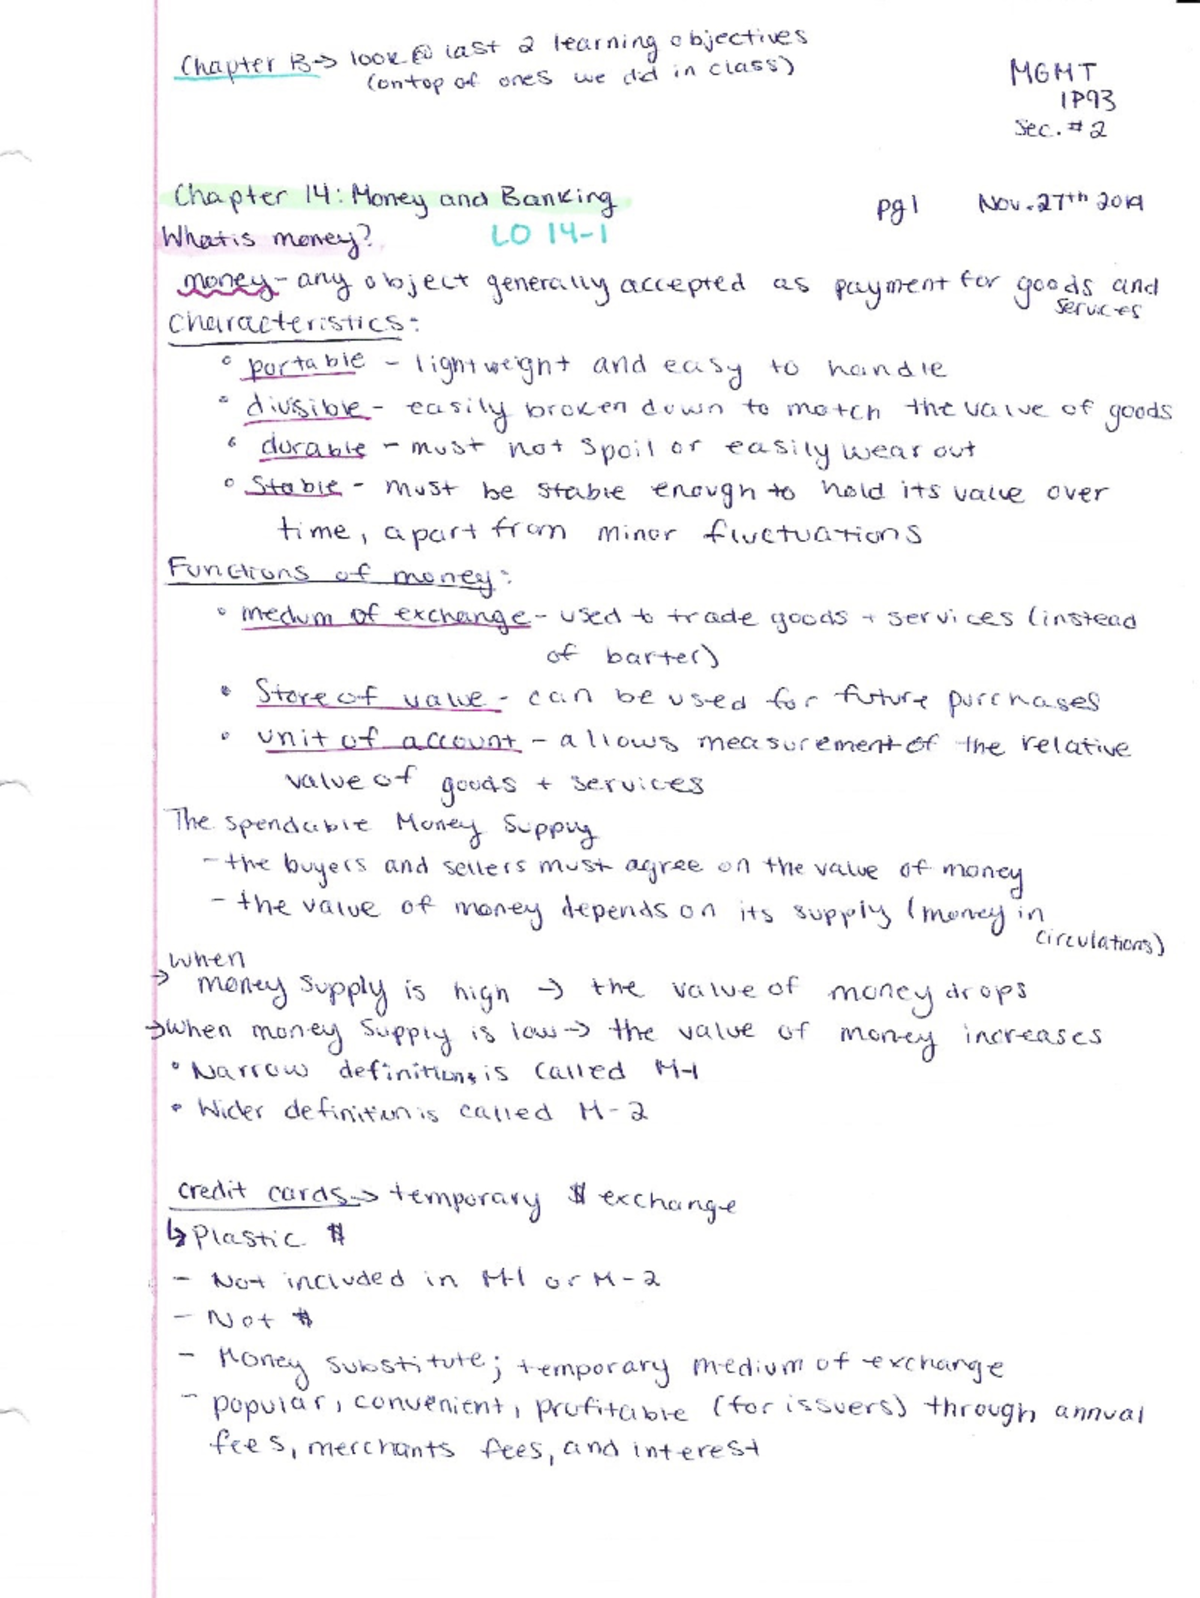 Chapter 13→ look @ last 2 learning objectives
(ontop of ones we did in class)
MGMT
1P93
Sec. #2
Chapter 14: Money and Banking
pg1 Nov. 27th 2019
What is money? LO 14-1
money - any object generally accepted as payment for goods and
services
Characteristics:
• portable - lightweight and easy to handle
• divisible - easily broken down to match the value of goods
• durable - must not spoil or easily wear out
• Stable - must be stable enough to hold its value over
time, apart from minor fluctuations
Functions of money:
• medium of exchange - used to trade goods + services (instead
of barter)
• Store of value - can be used for future purchases
• unit of account - allows measurement of the relative
value of goods + services
The spendable Money Supply
- the buyers and sellers must agree on the value of money
- the value of money depends on its supply (money in
circulations)
when
→ money supply is high → the value of money drops
→ when money supply is low → the value of money increases
• Narrow definitions is called M-1
• Wider definition is called M-2
credit cards → temporary $ exchange
↳ Plastic $
- Not included in M-1 or M-2
- Not $
- Money substitute; temporary medium of exchange
- popular, convenient, profitable (for issuers) through annual
fees, merchants fees, and interest